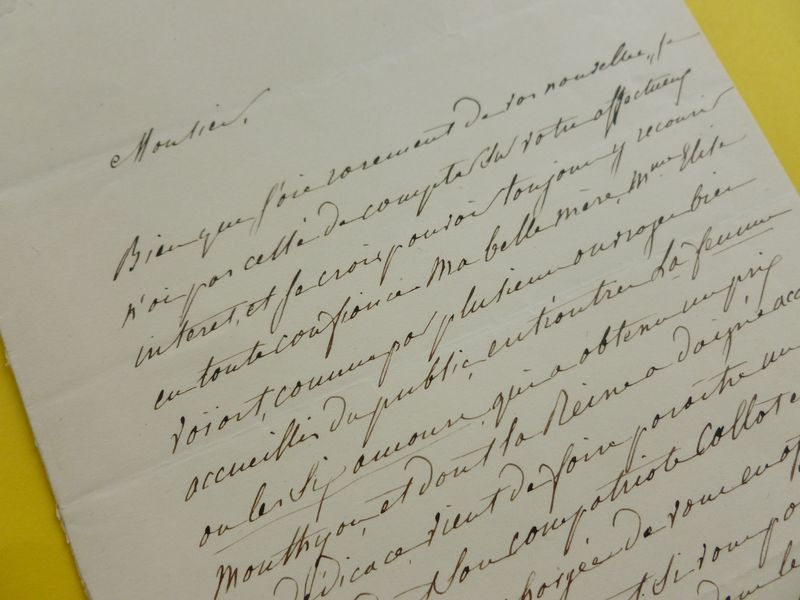 Monsieur,
Bien que j'aie rarement de vos nouvelles, je
n'ai pas cessé de compter sur votre affectueux
interet, et je crois pouvoir toujours y recourir
en toute confiance. Ma belle mère, Mme Elise
Voiart, connue par plusieurs ouvrages bien
accueillis du public, entr'autres La femme
ou les Six amours, qui a obtenu un prix
Monthyon, et dont la Reine a daigné acc
dédicace, vient de faire paraître un
dont son compatriote Callot e
chargée de vous en
si vous po